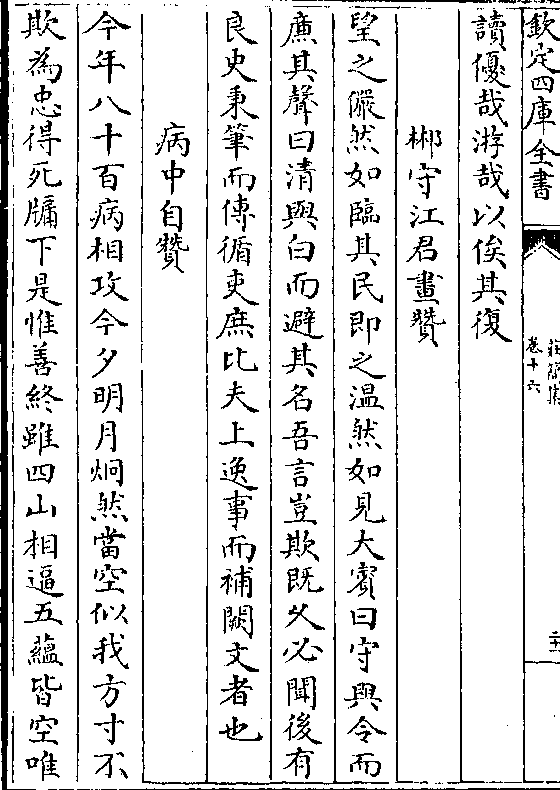 欽定四庫全書
莊簡集
卷十六
讀優哉游哉以俟其復
郴守江君畫贊
望之儼然如臨其民即之温然如見大賓曰守與令而
廉其聲曰清與白而避其名吾言豈欺既久必聞後有
良史秉筆而傳循吏庶比夫上逸事而補闕文者也
病中自贊
今年八十百病相攻今夕明月炯然當空似我方寸不
欺為忠得死牖下是惟善終雖四山相逼五藴皆空唯